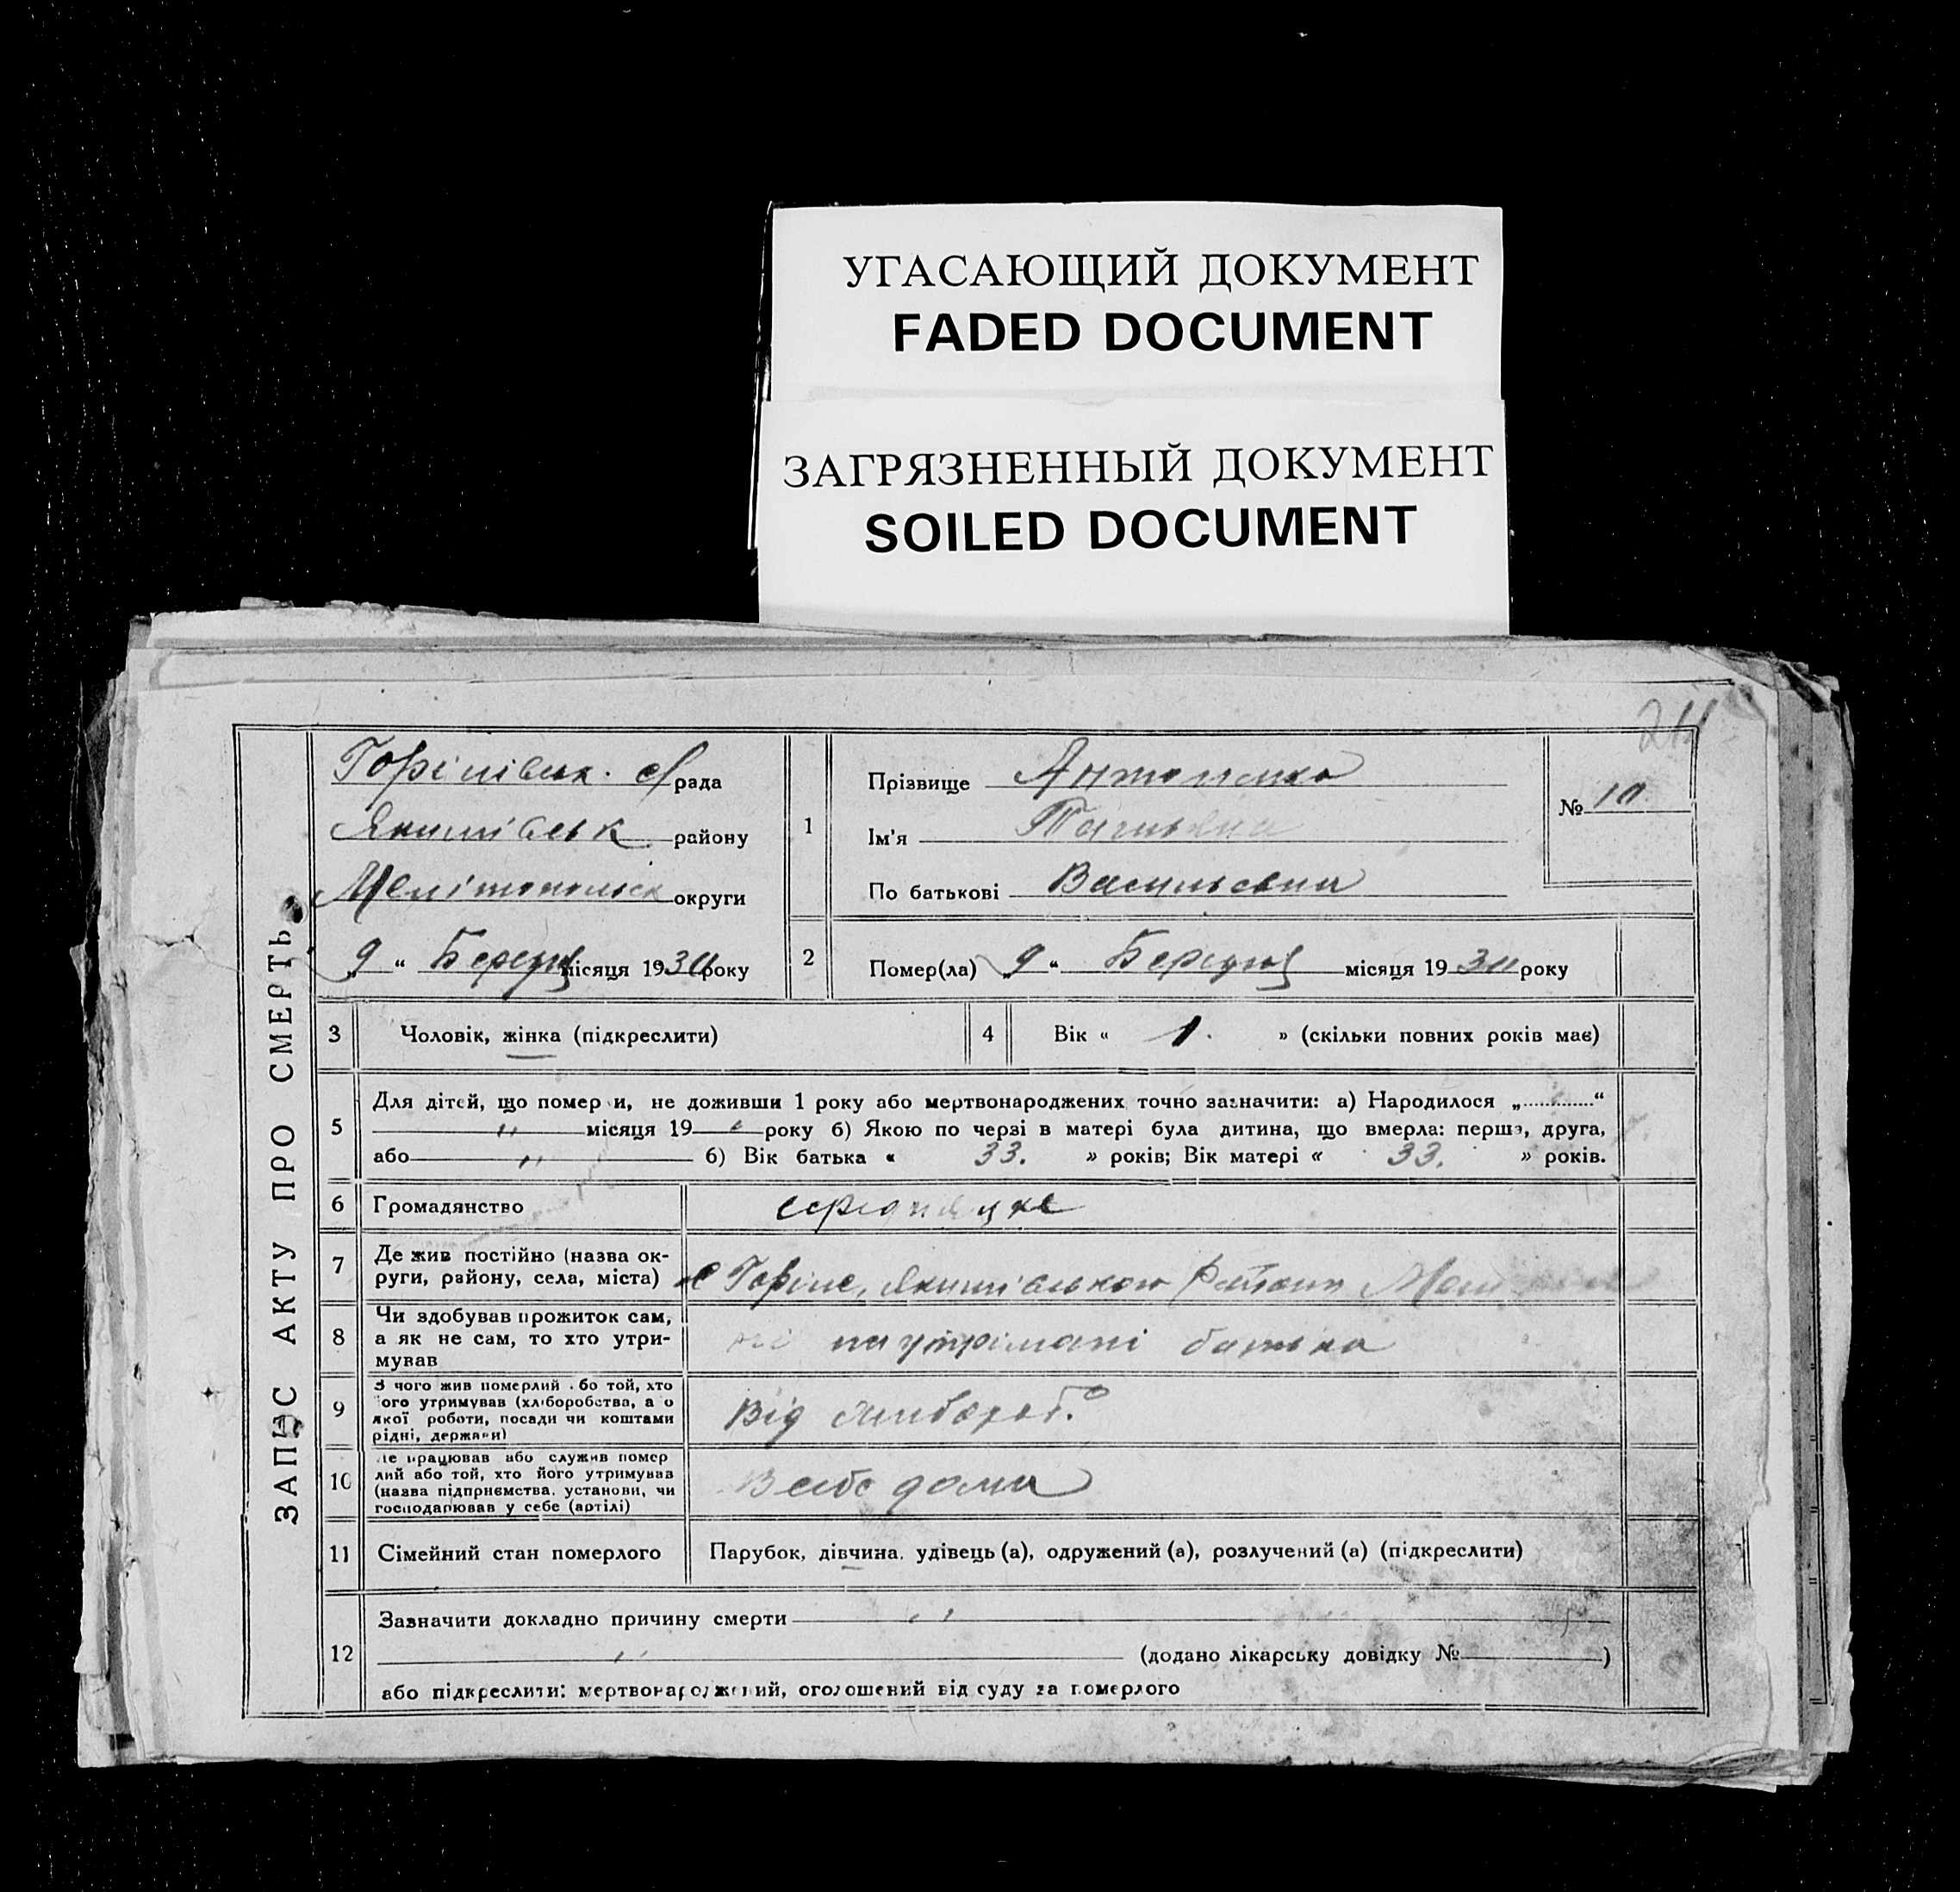 УГАСАЮЩИЙ ДОКУМЕНТ
FADED DOCUMENT
ЗАГРЯЗНЕННЫЙ ДОКУМЕНТ
SOILED DOCUMENT
ЗАПИС АКТУ ПРО СМЕРТЬ
рада
району
Мелітопольськ округи
9 “ Березня місяця 1930 року
1
Прізвище Антоненко
Ім'я Татьяна
По батькові Васильевна
№ 10
2
Помер(ла) 9 “ Березня місяця 1930 року
3 Чоловік, жінка (підкреслити)
4 Вік « 1. » (скільки повних років має)
5
Для дітей, що померли, не доживши 1 року або мертвонароджених точно зазначити: а) Народилося „ “
" місяця 19 " року б) Якою по черзі в матері була дитина, що вмерла: перша, друга,
або " б) Вік батька « 33. » років; Вік матері « 33. » років.
6 Громадянство
7 Де жив постійно (назва ок-
руги, району, села, міста)
8
Чи здобував прожиток сам,
а як не сам, то хто утри-
мував
на утрімані батька
9
З чого жив померлий або той, хто
його утримував (хліборобства, а о
якої роботи, посади чи коштами
рідні, держави)
Від
10
Де працював або служив помер
лий або той, хто його утримував
(назва підприємства, установи, чи
господарював у себе (артілі)
В себе дома
11 Сімейний стан померлого Парубок, дівчина, удівець (а), одружений (а), розлучений (а) (підкреслити)
12
Зазначити докладно причину смерти "
" (додано лікарську довідку № )
або підкреслити: мертвонароджений, оголошений від суду за померлого